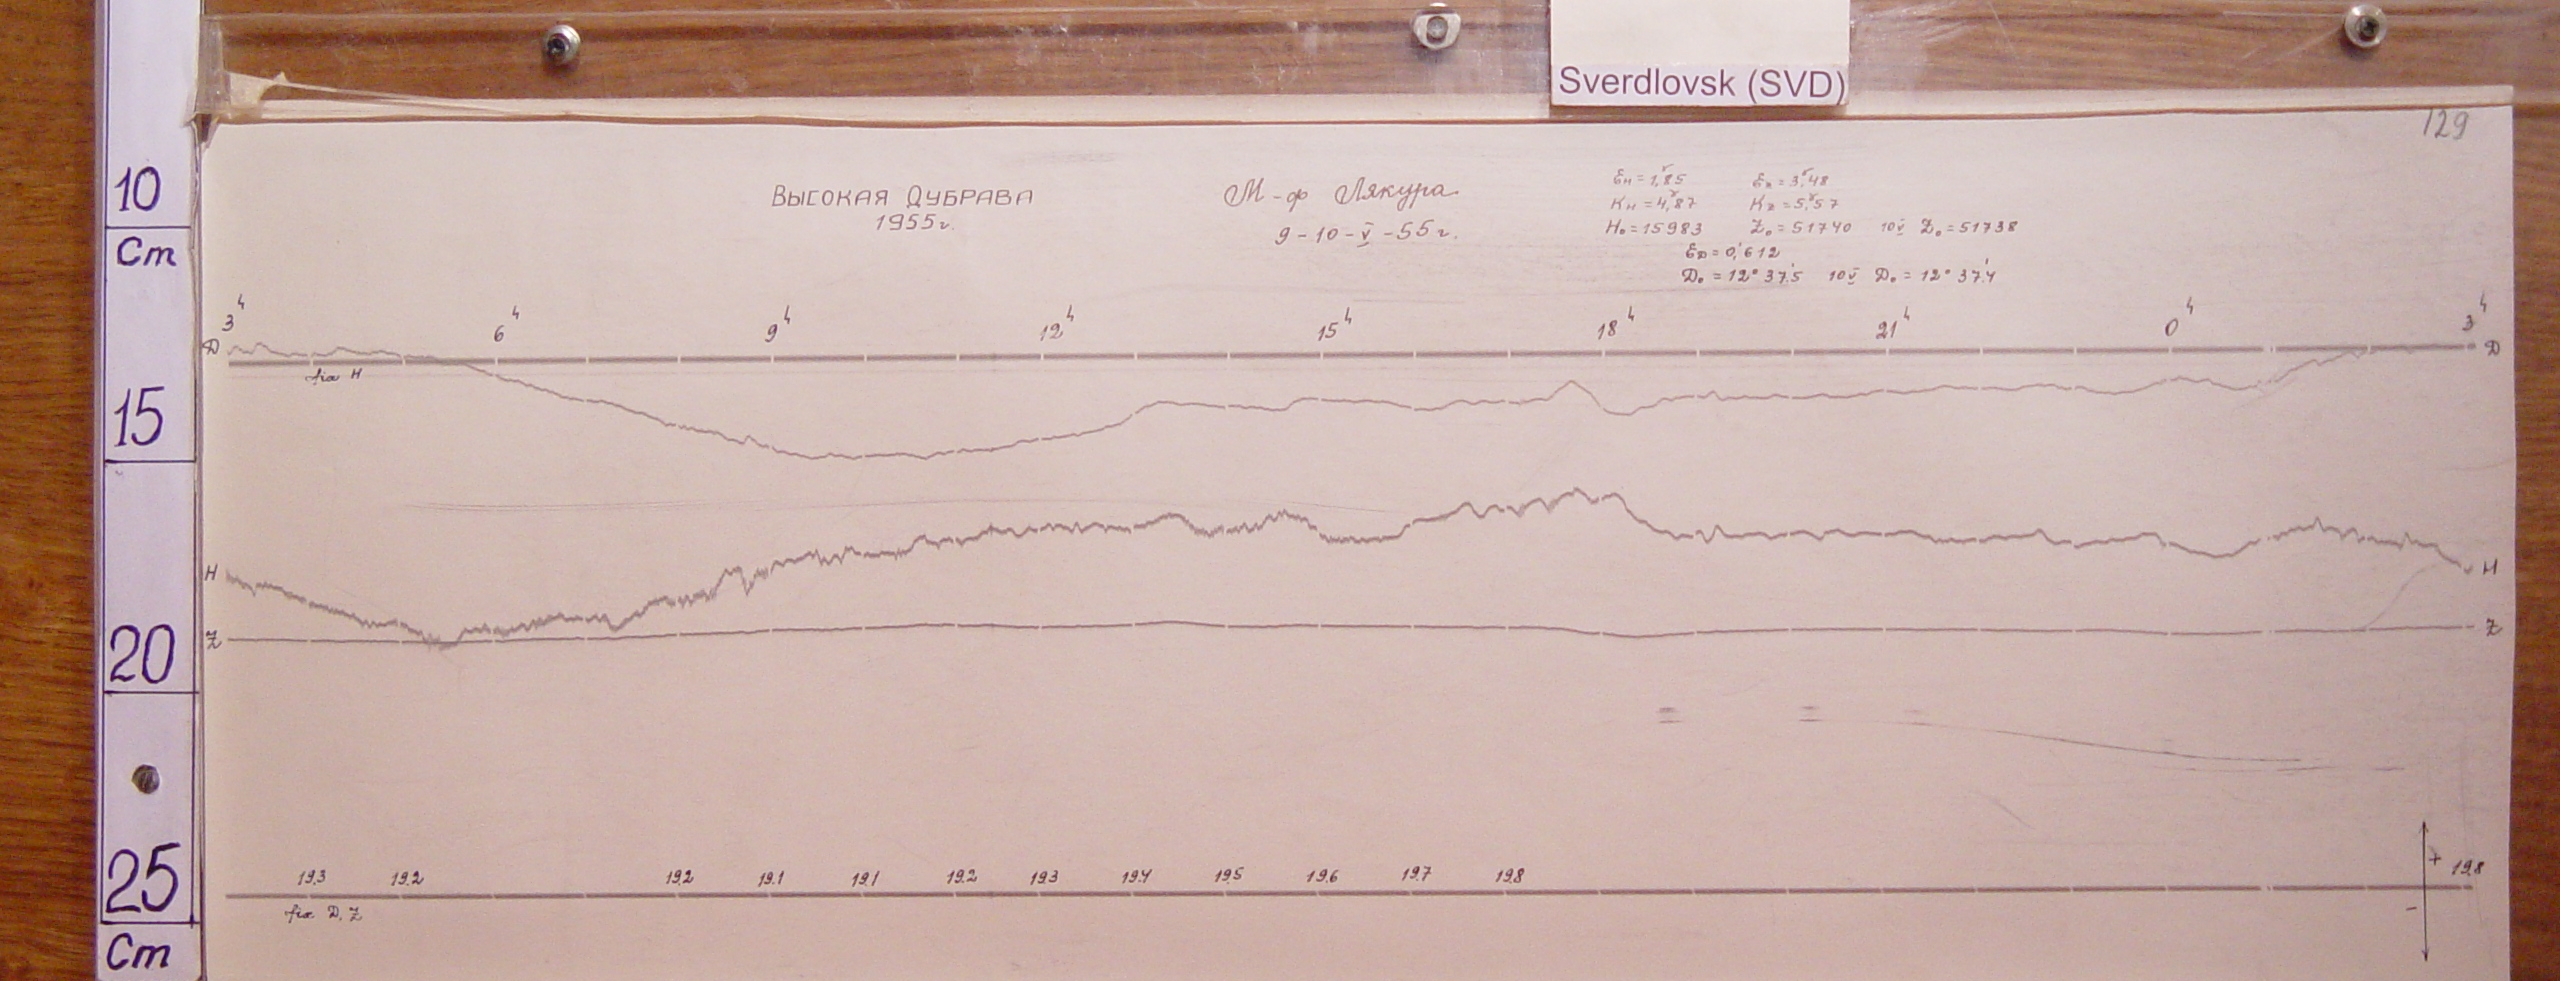 Sverdlovsk (SVD)
129
10
Cm
15
20
25
Cm
ВЫСОКАЯ ДУБРАВА
1955г.
М-ф Лякура
9-10-V-55г.
Ен=1,ˠ85 Ez=3,ˠ48
Kн=4,ˠ87 Kz=5,ˠ57
H₀=15983 Z₀=51740 10V Z₀=51738
ED=0,'612
D₀=12°37'.5 10V D₀=12°37'.4
3ʰ 6ʰ 9ʰ 12ʰ 15ʰ 18ʰ 21ʰ 0ʰ 3ʰ
D D
fix H
H H
Z Z
19.3 19.2 19.2 19.1 19.1 19.2 19.3 19.4 19.5 19.6 19.7 19.8 + 19.8
fix D, Z -